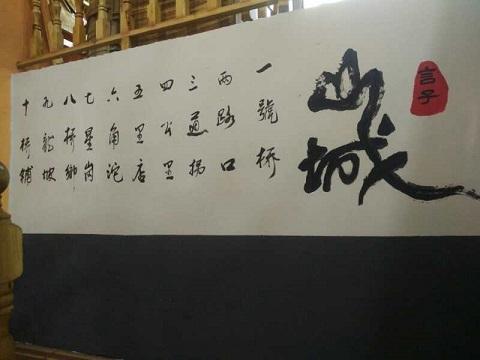 言子
山城
一號桥
两路口
三道拐
四公里
五里店
六角沱
七星岗
八桥鄉
九龍坡
十桥鋪